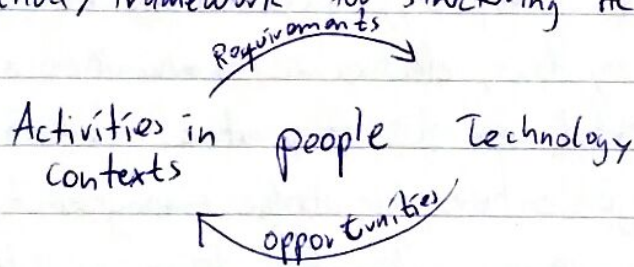 framework for structuring
Requirements
Activities in people Technology
contexts
opportunities